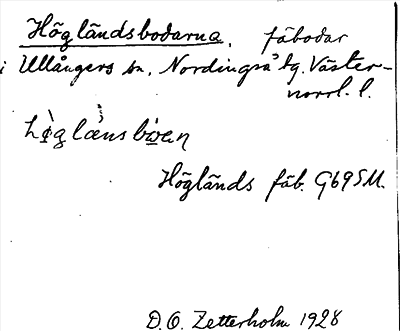 Höglandsbodarna, fäbodar
i Ullångers sn, Nordingrå tg. Väster-
norrl. l.
Höglands fäb. G69SM.
D.O. Zetterholm 1928